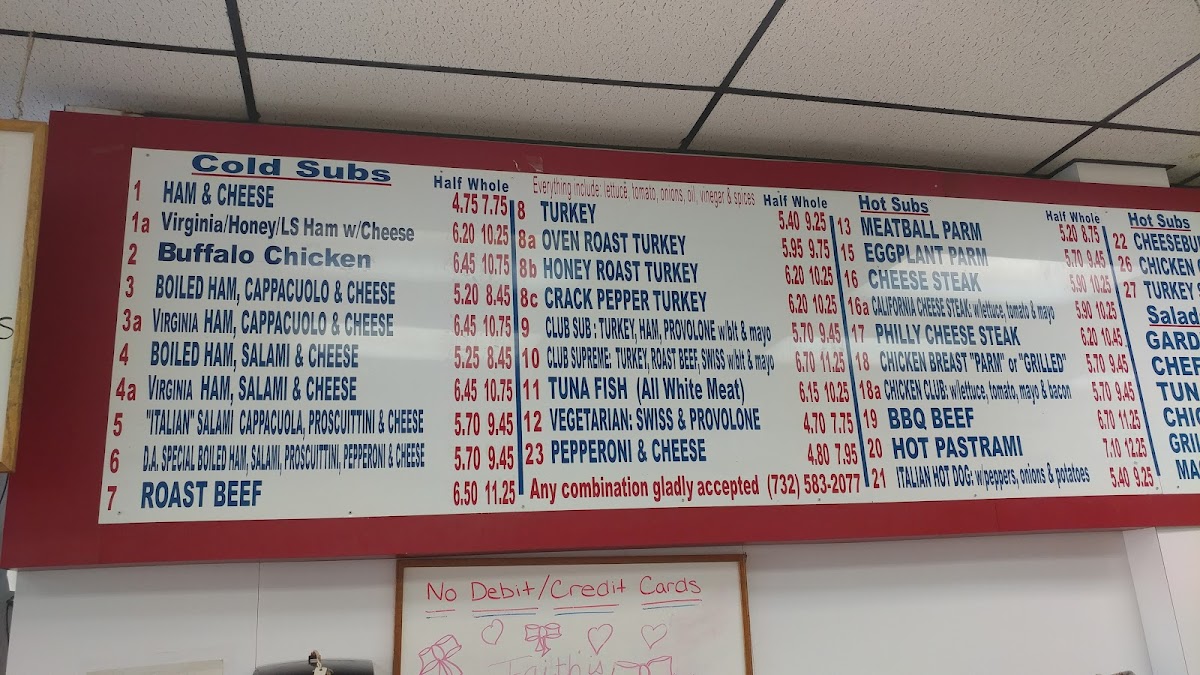 Cold Subs
Half Whole
1 HAM & CHEESE 4.75 7.75
1a Virginia/Honey/LS Ham w/Cheese 6.20 10.25
2 Buffalo Chicken 6.45 10.75
3 BOILED HAM, CAPPACUOLO & CHEESE 5.20 8.45
3a VIRGINIA HAM, CAPPACUOLO & CHEESE 6.45 10.75
4 BOILED HAM, SALAMI & CHEESE 5.25 8.45
4a VIRGINIA HAM, SALAMI & CHEESE 6.45 10.75
5 "ITALIAN" SALAMI CAPPACUOLA, PROSCUITTINI & CHEESE 5.70 9.45
6 D.A. SPECIAL BOILED HAM, SALAMI, PROSCUITTINI, PEPPERONI & CHEESE 5.70 9.45
7 ROAST BEEF 6.50 11.25
Everything include: lettuce, tomato, onions, oil, vinegar & spices
Half Whole
8 TURKEY 5.40 9.25
8a OVEN ROAST TURKEY 5.95 9.75
8b HONEY ROAST TURKEY 6.20 10.25
8c CRACK PEPPER TURKEY 6.20 10.25
9 CLUB SUB : TURKEY, HAM, PROVOLONE w/blt & mayo 5.70 9.45
10 CLUB SUPREME: TURKEY, ROAST BEEF, SWISS w/blt & mayo 6.70 11.25
11 TUNA FISH (All White Meat) 6.15 10.25
12 VEGETARIAN: SWISS & PROVOLONE 4.70 7.75
23 PEPPERONI & CHEESE 4.80 7.95
Any combination gladly accepted (732) 583-2077
Hot Subs
Half Whole
13 MEATBALL PARM 5.20 8.75
15 EGGPLANT PARM 5.70 9.45
16 CHEESE STEAK 5.90 10.25
16a CALIFORNIA CHEESE STEAK: w/lettuce, tomato & mayo 5.90 10.25
17 PHILLY CHEESE STEAK 6.20 10.45
18 CHICKEN BREAST "PARM" or "GRILLED" 5.70 9.45
18a CHICKEN CLUB: w/lettuce, tomato, mayo & bacon 5.70 9.45
19 BBQ BEEF 6.70 11.25
20 HOT PASTRAMI 7.10 12.25
21 ITALIAN HOT DOG: w/peppers, onions & potatoes 5.40 9.25
Hot Subs
22 CHEESEBU
26 CHICKEN
27 TURKEY
Salad
GARD
CHEF
TUN
CHI
GRI
MA
No Debit/Credit Cards